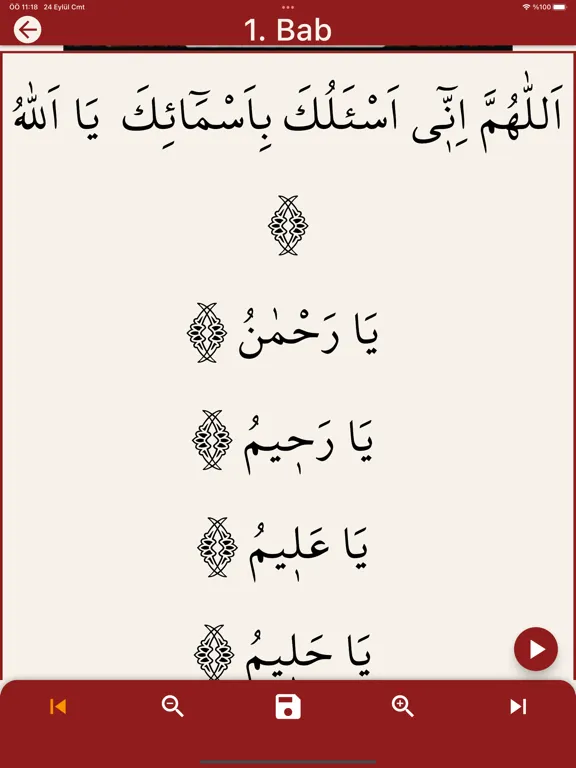 ÖÖ 11:18 24 Eylül Cmt %100
1. Bab
اَللّٰهُمَّ اِنّ۪ٓى اَسْئَلُكَ بِاَسْمَٓائِكَ يَا اَللّٰهُ
يَا رَحْمٰنُ
يَا رَح۪يمُ
يَا عَل۪يمُ
يَا حَل۪يمُ